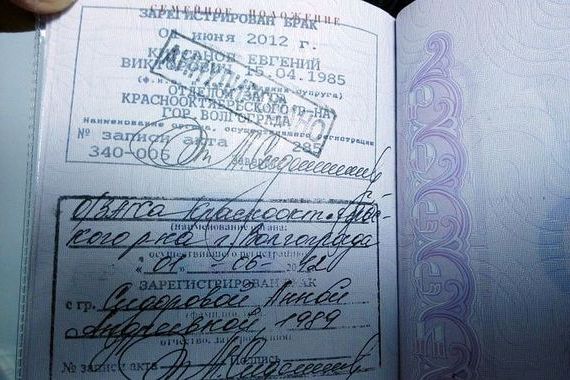 СЕМЕЙНОЕ ПОЛОЖЕНИЕ
ЗАРЕГИСТРИРОВАН БРАК
01 июня 2012 г.
ЕВГЕНИЙ
15.04.1985
ОТДЕЛОМ
КРАСНООКТЯБРЬСКОГО Р-НА
ГОР. ВОЛГОГРАДА
Наименование органа, осуществившего регистрацию
№ записи акта 285
340-006 Заверил
О/ЗАГСа Краснооктябрь-
кого р-на г. Волгограда
(наименование органа,
осуществившего регистрацию)
"01" - 06 - 2012
ЗАРЕГИСТРИРОВАН БРАК
с гр. Сидоровой Анной
Андреевной, 1989
отчество, дата рождения)
№ записи акта Подпись